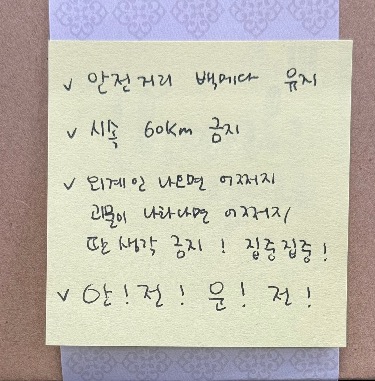 ✓ 안전거리 백메다 유지
✓ 시속 60km 금지
✓ 외계인 나오면 어쩌지
괴물이 나타나면 어쩌지
딴생각 금지! 집중집중!
✓ 안!전!운!전!